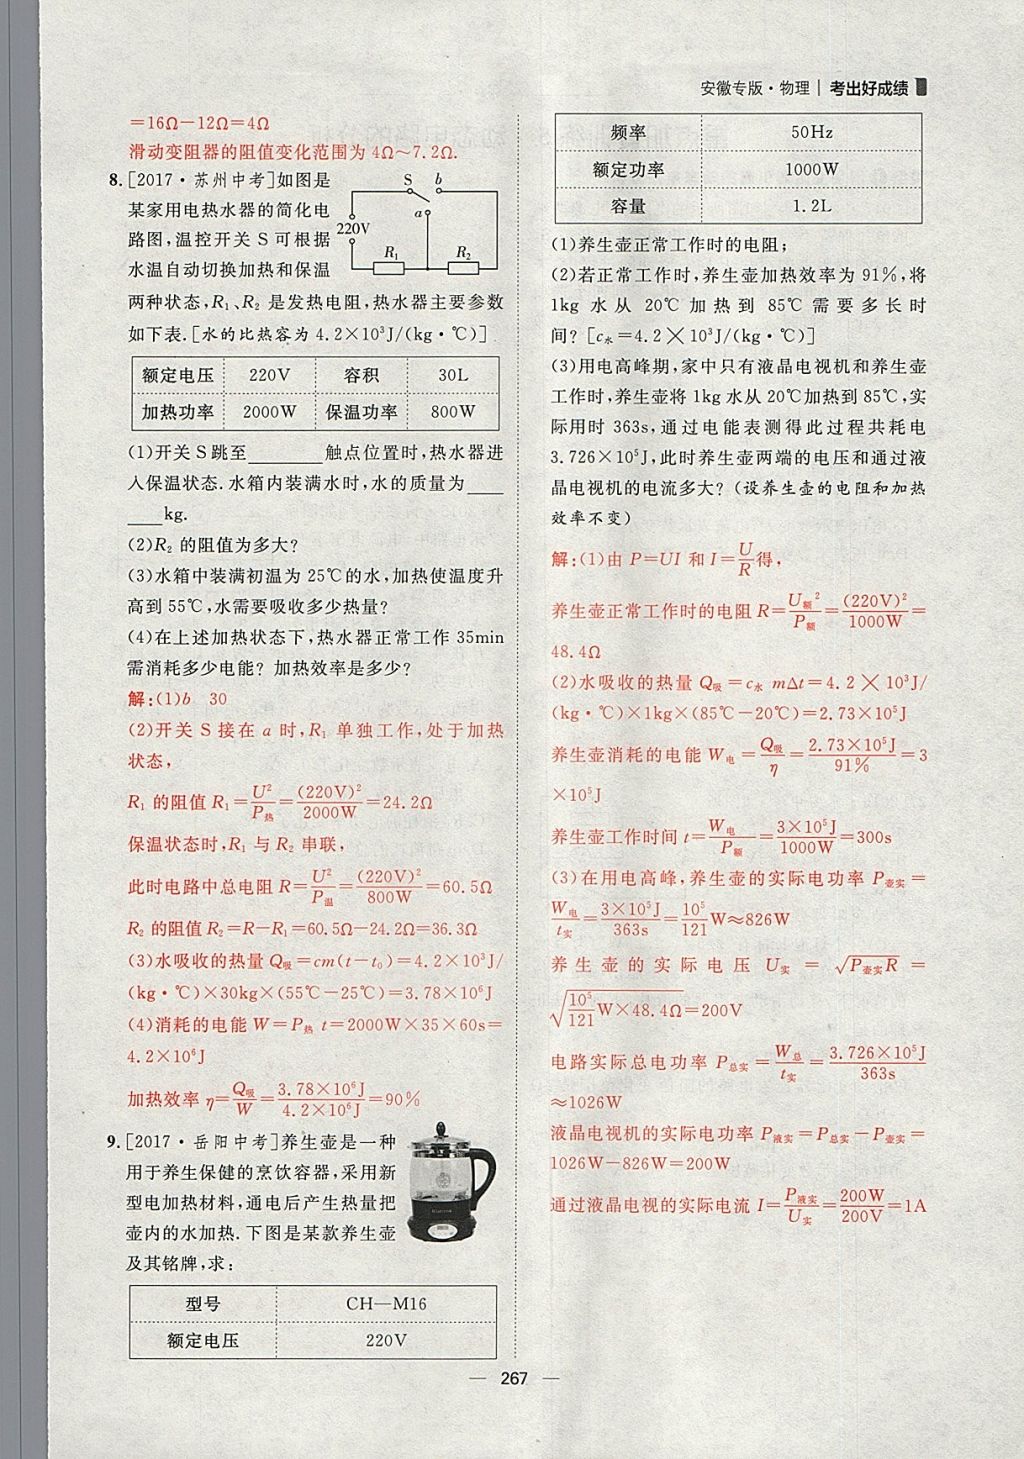 安徽专版·物理 | 考出好成绩
=16Ω-12Ω=4Ω
滑动变阻器的阻值变化范围为 4Ω～7.2Ω.
8.[2017·苏州中考]如图是
某家用电热水器的简化电
路图,温控开关 S 可根据
水温自动切换加热和保温
S b
a
220V
R₁ R₂
两种状态,R₁、R₂ 是发热电阻,热水器主要参数
如下表.[水的比热容为 4.2×10³J/(kg·℃)]
额定电压 220V 容积 30L
加热功率 2000W 保温功率 800W
(1)开关 S 跳至________触点位置时,热水器进
入保温状态.水箱内装满水时,水的质量为____
____kg.
(2)R₂ 的阻值为多大?
(3)水箱中装满初温为 25℃的水,加热使温度升
高到 55℃,水需要吸收多少热量?
(4)在上述加热状态下,热水器正常工作 35min
需消耗多少电能? 加热效率是多少?
解:(1)b 30
(2)开关 S 接在 a 时,R₁ 单独工作,处于加热
状态,
R₁ 的阻值 R₁=U²/P热=(220V)²/2000W=24.2Ω
保温状态时,R₁ 与 R₂ 串联,
此时电路中总电阻 R=U²/P温=(220V)²/800W=60.5Ω
R₂ 的阻值 R₂=R-R₁=60.5Ω-24.2Ω=36.3Ω
(3)水吸收的热量 Q吸=cm(t-t₀)=4.2×10³J/
(kg·℃)×30kg×(55℃-25℃)=3.78×10⁶J
(4)消耗的电能 W=P热 t=2000W×35×60s=
4.2×10⁶J
加热效率 η=Q吸/W=3.78×10⁶J/4.2×10⁶J=90%
9.[2017·岳阳中考]养生壶是一种
用于养生保健的烹饮容器,采用新
型电加热材料,通电后产生热量把
壶内的水加热.下图是某款养生壶
及其铭牌,求:
型号 CH—M16
额定电压 220V
频率 50Hz
额定功率 1000W
容量 1.2L
(1)养生壶正常工作时的电阻;
(2)若正常工作时,养生壶加热效率为 91%,将
1kg 水从 20℃加热到 85℃需要多长时
间? [c水=4.2×10³J/(kg·℃)]
(3)用电高峰期,家中只有液晶电视机和养生壶
工作时,养生壶将 1kg 水从 20℃加热到 85℃,实
际用时 363s,通过电能表测得此过程共耗电
3.726×10⁵J,此时养生壶两端的电压和通过液
晶电视机的电流多大? (设养生壶的电阻和加热
效率不变)
解:(1)由 P=UI 和 I=U/R得,
养生壶正常工作时的电阻 R=U额²/P额=(220V)²/1000W=
48.4Ω
(2)水吸收的热量 Q吸=c水 mΔt=4.2×10³J/
(kg·℃)×1kg×(85℃-20℃)=2.73×10⁵J
养生壶消耗的电能 W电=Q吸/η=2.73×10⁵J/91%=3
×10⁵J
养生壶工作时间 t=W电/P额=3×10⁵J/1000W=300s
(3)在用电高峰,养生壶的实际电功率 P壶实=
W电/t实=3×10⁵J/363s=10⁵/121W≈826W
养生壶的实际电压 U实=√(P壶实R)=
√(10⁵/121W×48.4Ω)=200V
电路实际总电功率 P总实=W总/t实=3.726×10⁵J/363s
≈1026W
液晶电视机的实际电功率 P液实=P总实-P壶实=
1026W-826W=200W
通过液晶电视的实际电流 I=P液实/U实=200W/200V=1A
— 267 —